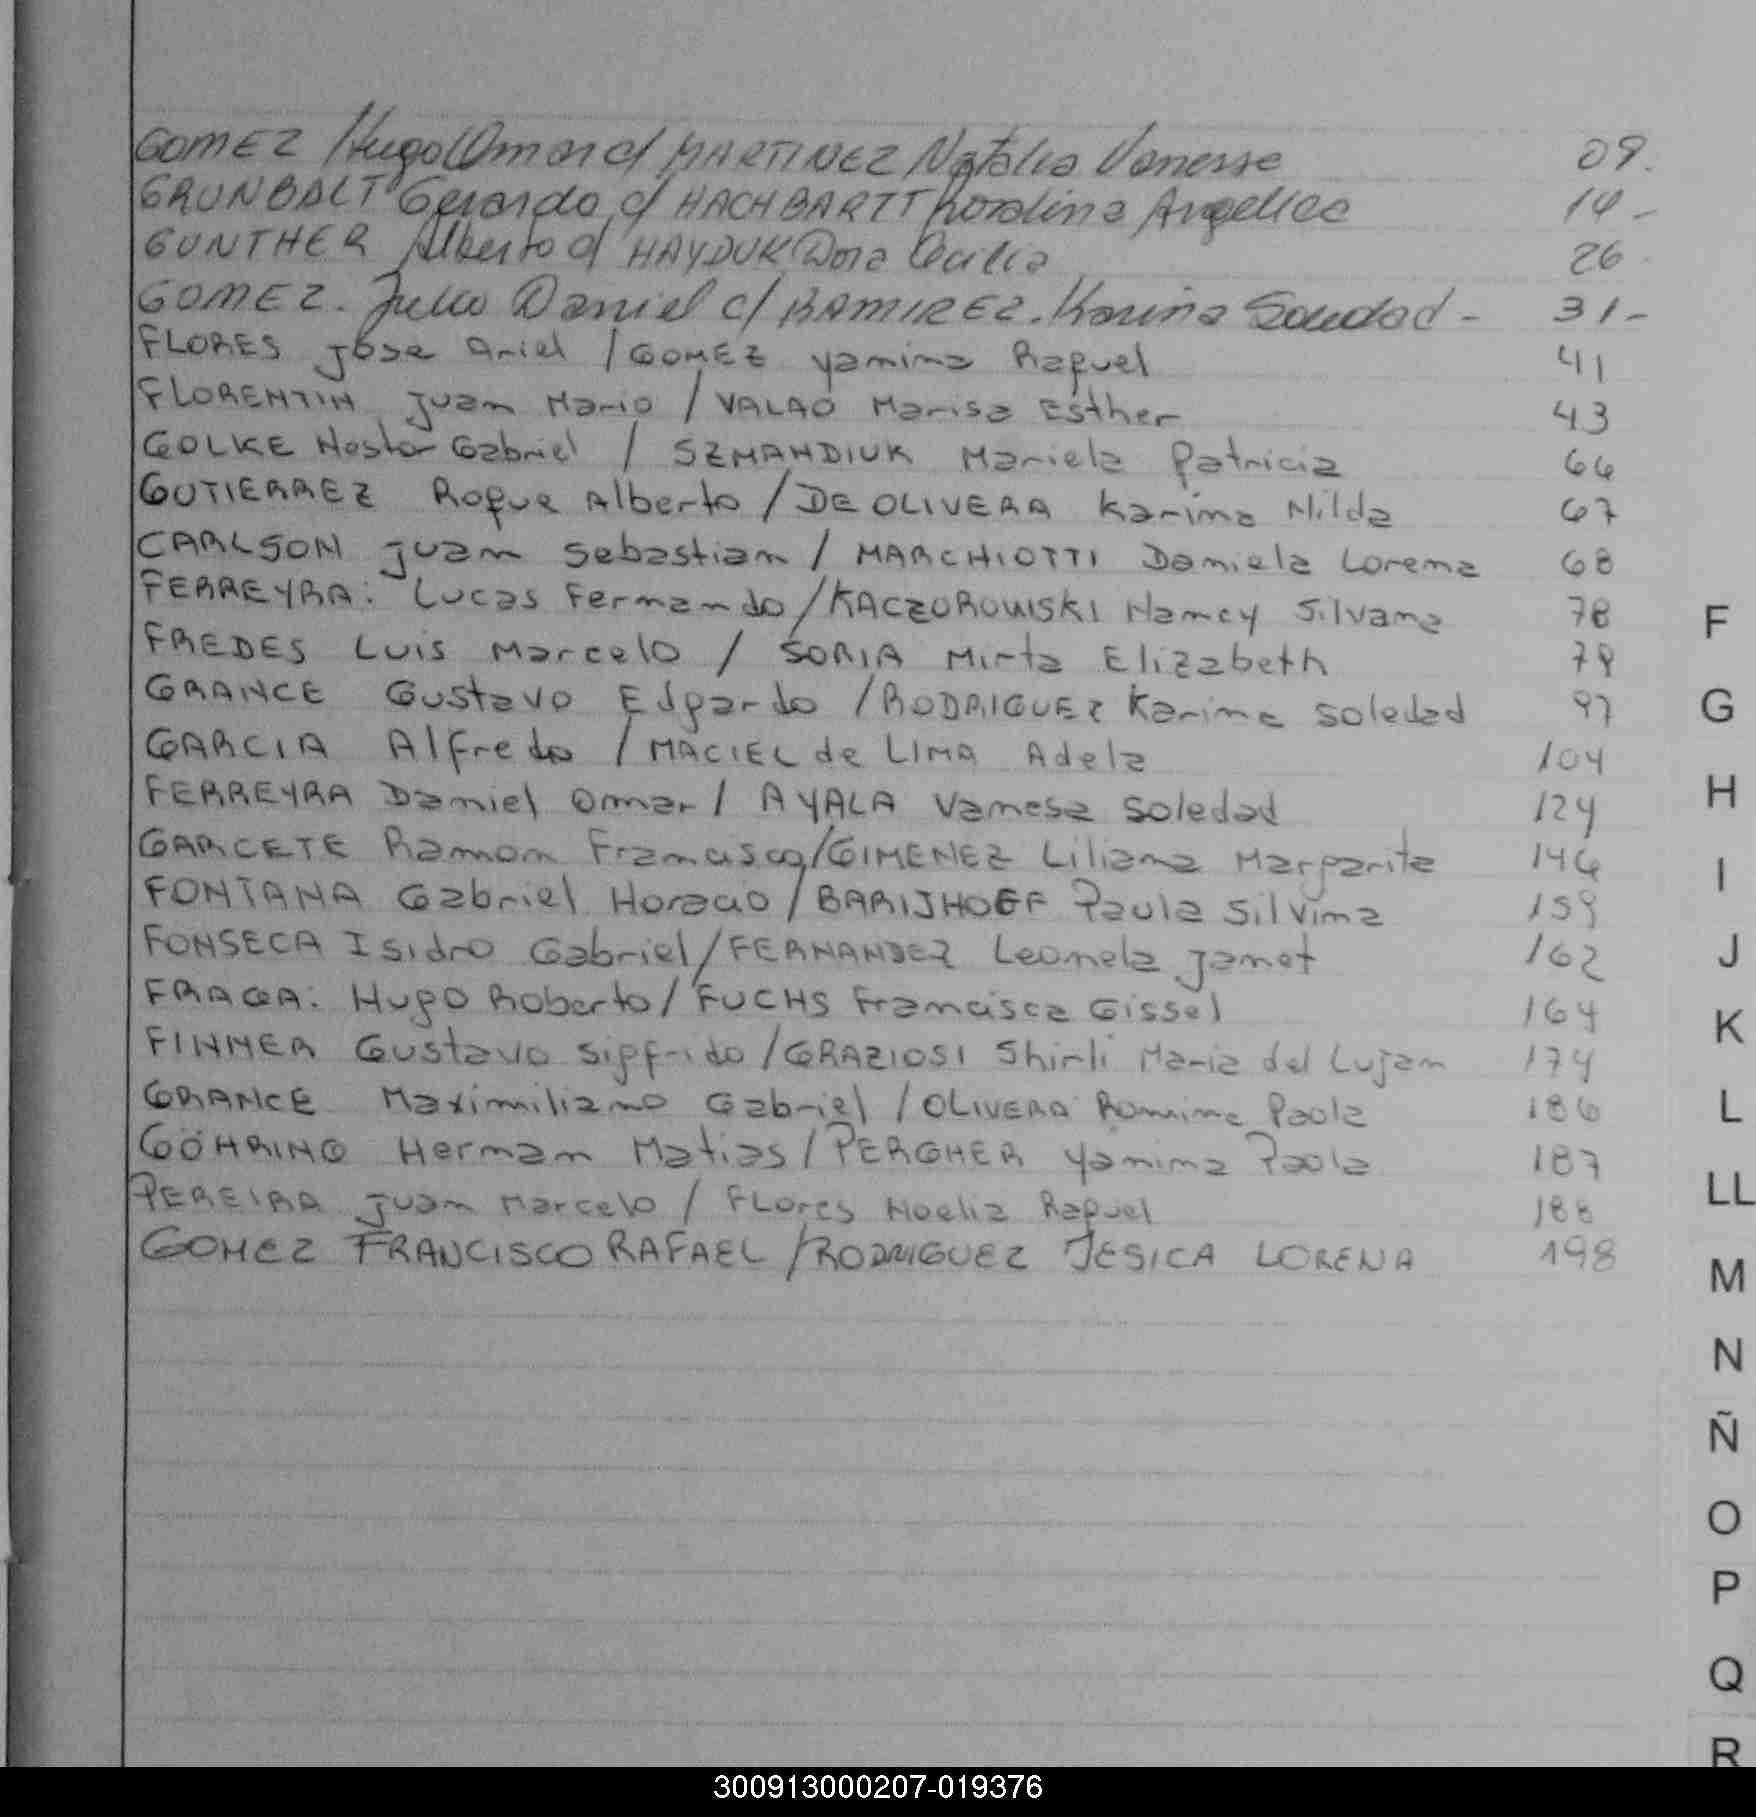 GOMEZ Hugo Omar c/ MARTINEZ Natalia Vanessa 09.
GRUNBALT Gerardo c/ HACHBARTT Carolina Angelica 14-
GUNTHER Alberto c/ HAYDUK Dora Cecilia 26.
GOMEZ. Julio Daniel c/ RAMIREZ. Karina Soledad - 31-
FLORES Jose Ariel / GOMEZ Yamina Raquel 41
FLORENTIN Juan Mario / VALAO Marisa Esther 43
GOLKE Nestor Gabriel / SZMANDIUK Mariela Patricia 66
GUTIERREZ Roque Alberto / DE OLIVERA Karina Nilda 67
CARLSON Juan Sebastian / MARCHIOTTI Daniela Lorena 68
FERREYRA: Lucas Fernando / KACZOROWSKI Nancy Silvana 78
FREDES Luis Marcelo / SORIA Mirta Elizabeth 79
GRANCE Gustavo Edgardo / RODRIGUEZ Karina Soledad 97
GARCIA Alfredo / MACIEL de LIMA Adela 104
FERREYRA Daniel Omar / AYALA Vanesa Soledad 124
GARCETE Ramon Francisco / GIMENEZ Liliana Margarita 146
FONTANA Gabriel Horacio / BARIJHOFF Paula Silvina 159
FONSECA Isidro Gabriel / FERNANDEZ Leonela Janet 162
FRAGA: Hugo Roberto / FUCHS Francisca Gissel 164
FINNER Gustavo Sigfrido / GRAZIOSI Shirli Maria del Lujan 174
GRANCE Maximiliano Gabriel / OLIVERA Romina Paola 186
GÖHRING Hernan Matias / PERGHER Yanina Paola 187
PEREIRA Juan Marcelo / FLORES Noelia Raquel 188
GOMEZ FRANCISCO RAFAEL / RODRIGUEZ JESICA LORENA 198
F
G
H
I
J
K
L
LL
M
N
Ñ
O
P
Q
R
300913000207-019376